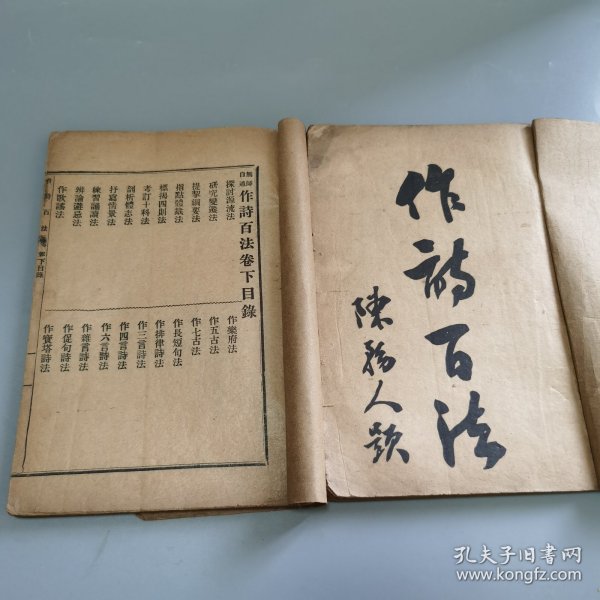 無師自通 作詩百法卷下目錄
探討源流法
研究變遷法
提挈綱要法
指點體裁法
標揭四則法
考訂十科法
剖析體志法
抒寫情景法
練習誦讀法
辨論避忌法
作歌謠法
作樂府法
作五古法
作七古法
作長短句法
作排律詩法
作三言詩法
作四言詩法
作六言詩法
作雜言詩法
作促句詩法
作寶塔詩法
作詩百法
陳務人題
孔夫子旧书网
www.kongfz.com